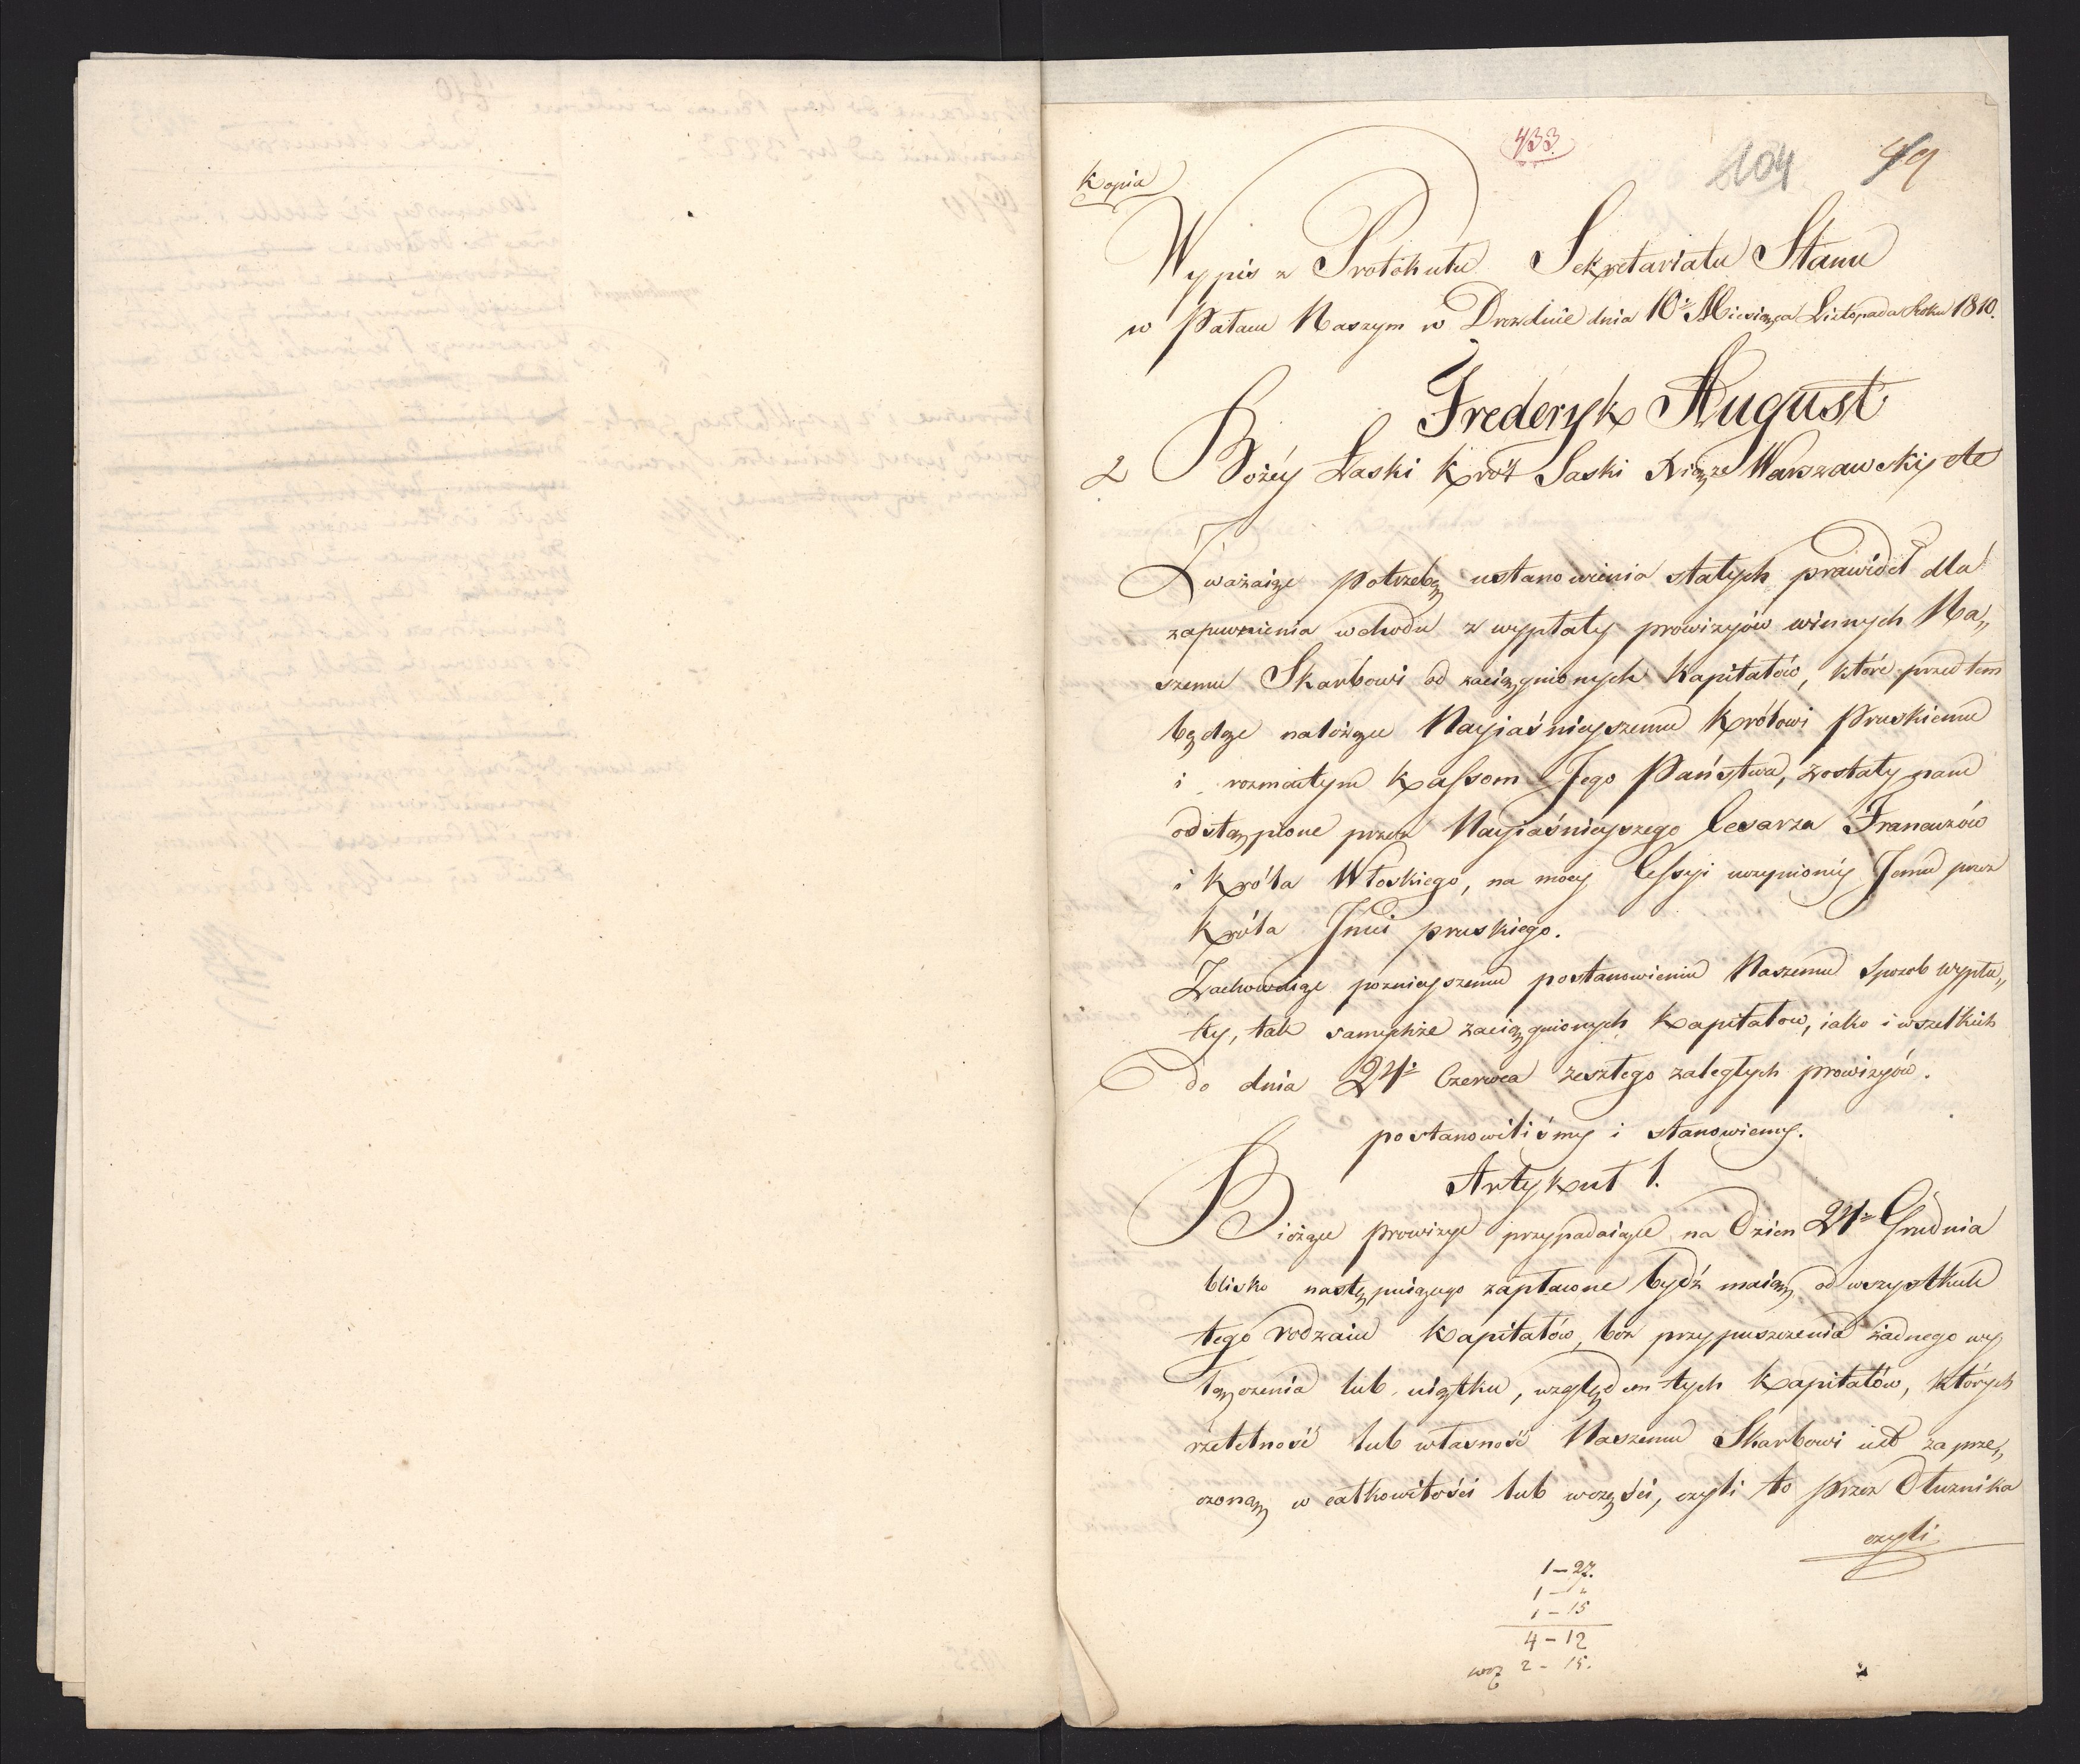 433.
104
49
Kopia
Wypis z Protokułu Sekretariatu Stanu
w Pałacu Naszym w Dreźnie dnia 10º Miesiąca Listopada Roku 1810.
Frederyk August
Z Bożey Łaski Król Saski Xiąże Warszawski etc
Zważaiąc potrzebę ustanowienia stałych prawideł dla
zapewnienia wchodu z wypłaty prowizyów winnych Na„
szemu Skarbowi od zaciągnionych Kapitałów, które przed tem
będąc należące Nayiaśnieyszemu Królowi Pruskiemu
i rozmaitym Kassom Jego Państwa, zostały nam
odstąpione przez Nayiaśnieyszego Cesarza Francuzów
i Króla Włoskiego, na mocy Cessyi uczynioney Jemu przez
Króla Jmci pruskiego.
Zachowuiąc poznieyszemu postanowieniu Naszemu sposob wypła„
ty, tak samychże zaciągnionych Kapitałow, iako i wszelkich
do dnia 24º Czerwca zeszłego zaległych prowizyów.
postanowiliśmy i stanowiemy.
Artykuł 1.
Bieżące prowizye przypadaiące na Dzien 24º Grudnia
blisko następuiącego zapłacone bydź maią od wszystkich
tego rodzaiu Kapitałów, bez przypuszczenia żadnego wy
łączenia lub uiątku, względem tych Kapitałów, których
rzetelność lub własność Naszemu Skarbowi iest zaprze„
czoną w całkowitości lub wczęści, czyli to przez Dłużnika
czyli
1 – 27.
1 – „
1 – 15
4 – 12
2 – 15.